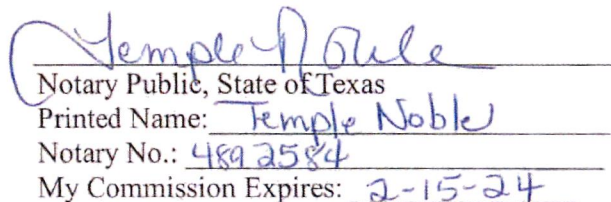 Temple Noble
Notary Public, State of Texas
Printed Name: Temple Noble
Notary No.: 4892584
My Commission Expires: 2-15-24